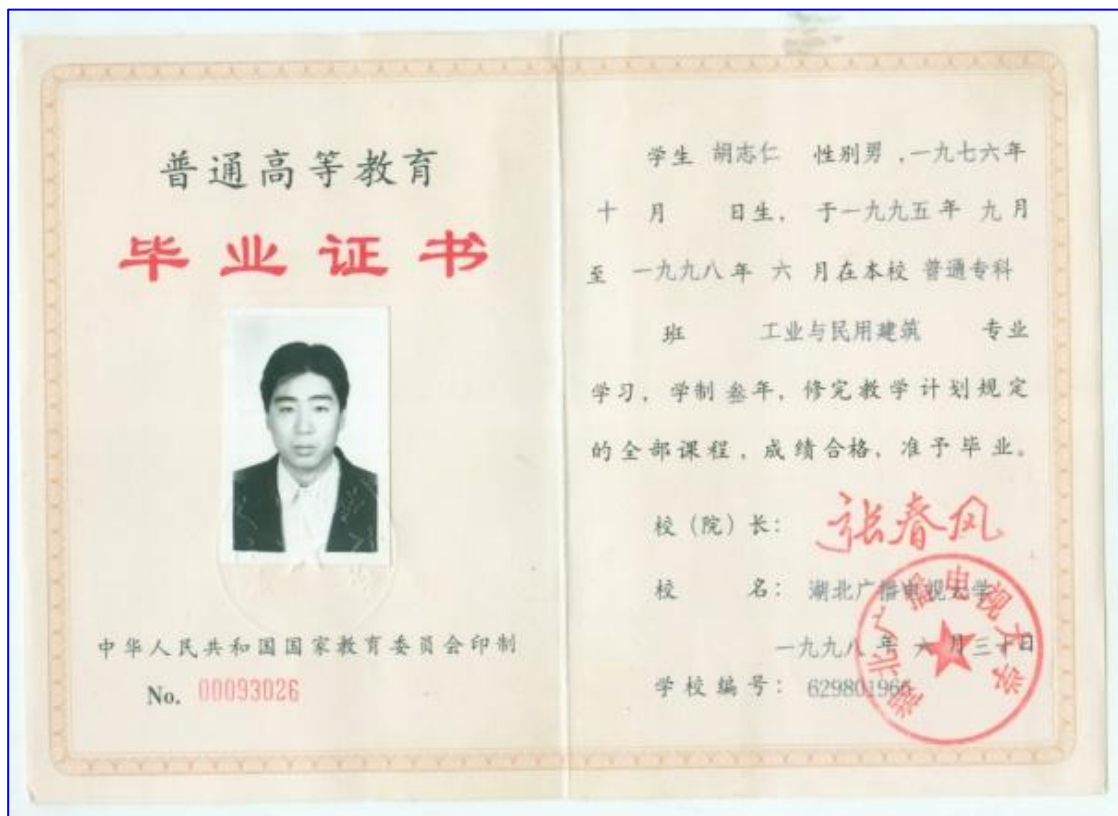 普通高等教育
毕业证书
中华人民共和国国家教育委员会印制
No. 00093026
学生 胡志仁 性别男，一九七六年
十 月 日生，于一九九五年 九月
至 一九九八年 六 月在本校 普通专科
班 工业与民用建筑 专业
学习，学制叁年，修完教学计划规定
的全部课程，成绩合格，准予毕业。
校（院）长： 张春风
校 名： 湖北广播电视大学
一九九八 年 六 月三十日
学校编号： 629801966
湖北广播电视大学